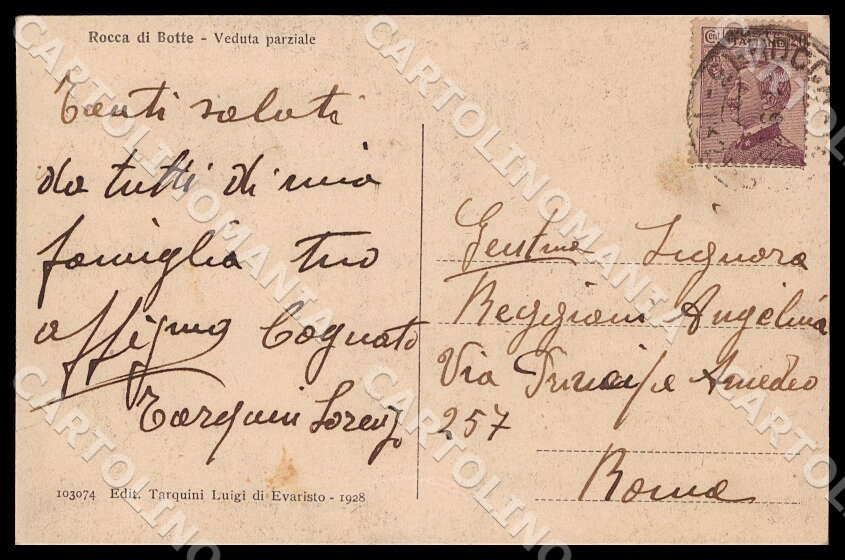 Rocca di Botte - Veduta parziale
Tanti saluti
da tutti di mia
famiglia tuo
affigmo Cognato
Tarquini Lorenzo
103074 Edit. Tarquini Luigi di Evaristo - 1928
Gentma Signora
Reggiani Angelina
Via Principe Amedeo
257
Roma
CARTOLINOMANIA